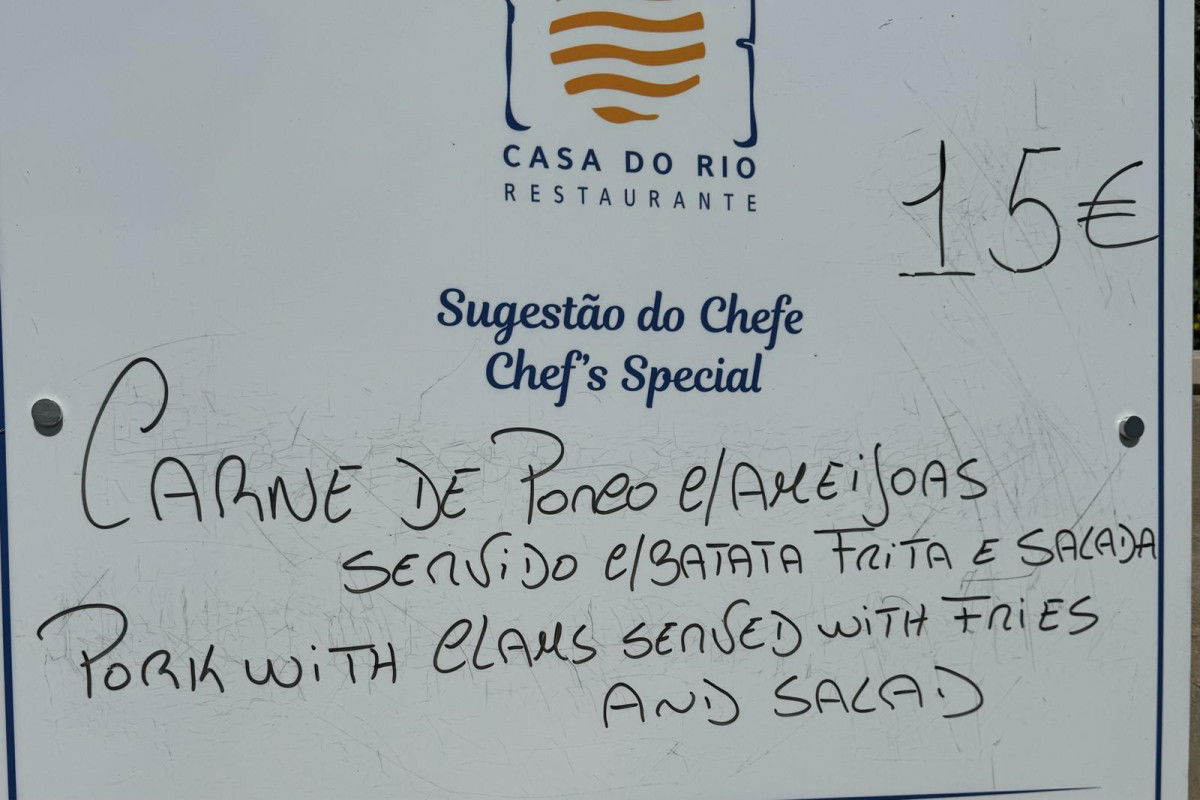 CASA DO RIO
RESTAURANTE
15€
Sugestão do Chefe
Chef's Special
CARNE DE PORCO C/AMEIJOAS
SERVIDO C/BATATA FRITA E SALADA
PORK WITH CLAMS SERVED WITH FRIES
AND SALAD